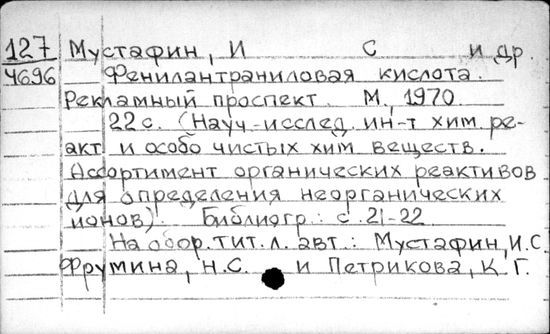 127 Мустафин, И С и др.
4696 Фенилантраниловая кислота.
Рекламный проспект. М., 1970.
22 с. (Науч.-исслед. ин-т хим. ре-
акт. и особо чистых хим. веществ.
Ассортимент органических реактивов
для определения неорганических
ионов). Библиогр.: с. 21-22
На обор. тит. л. авт.: Мустафин, И.С.
Фрумина, Н.С. и Петрикова, К.Г.